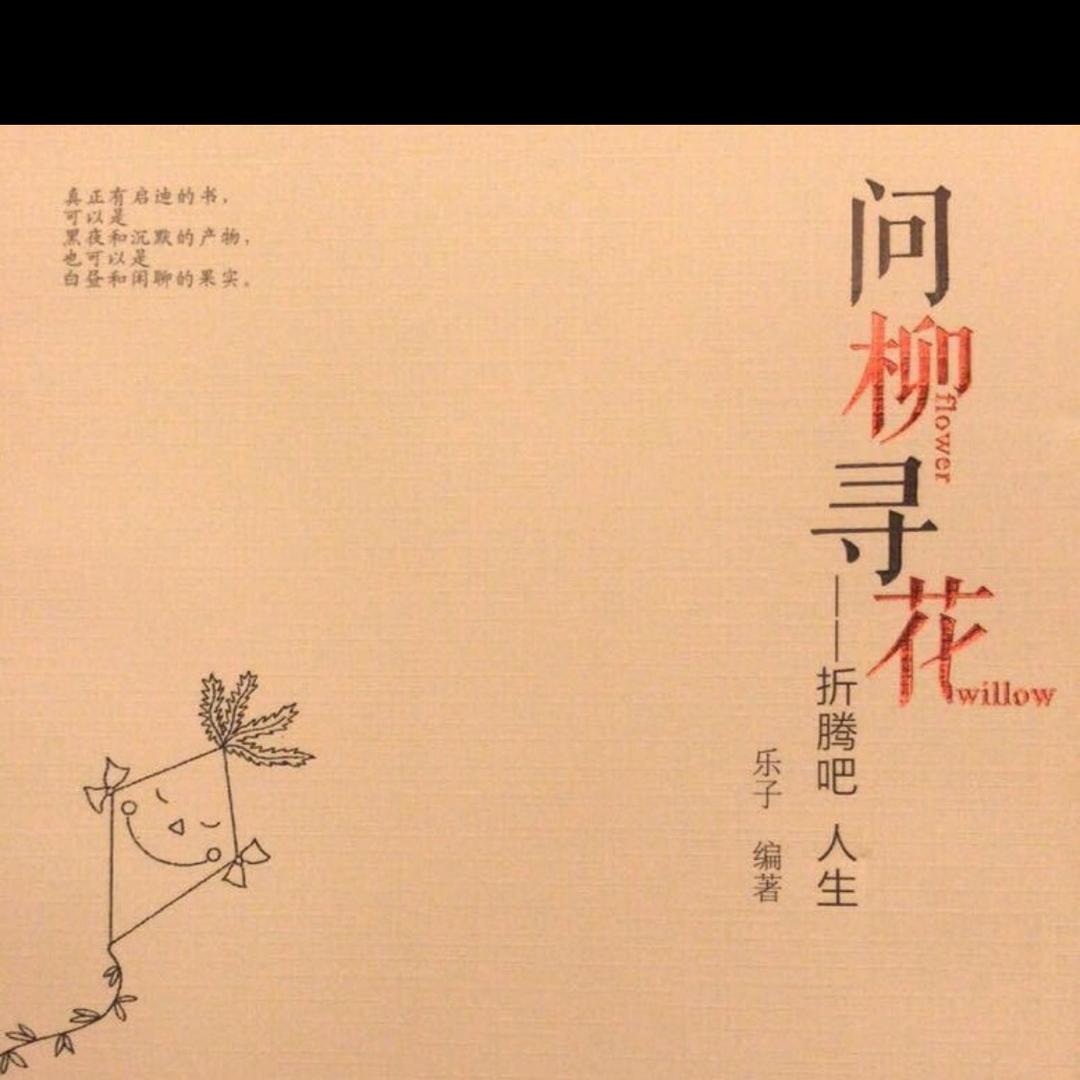 真正有启迪的书，
可以是
黑夜和沉默的产物，
也可以是
白昼和闲聊的果实。
问柳寻花
flower
willow
——折腾吧 人生
乐子 编著